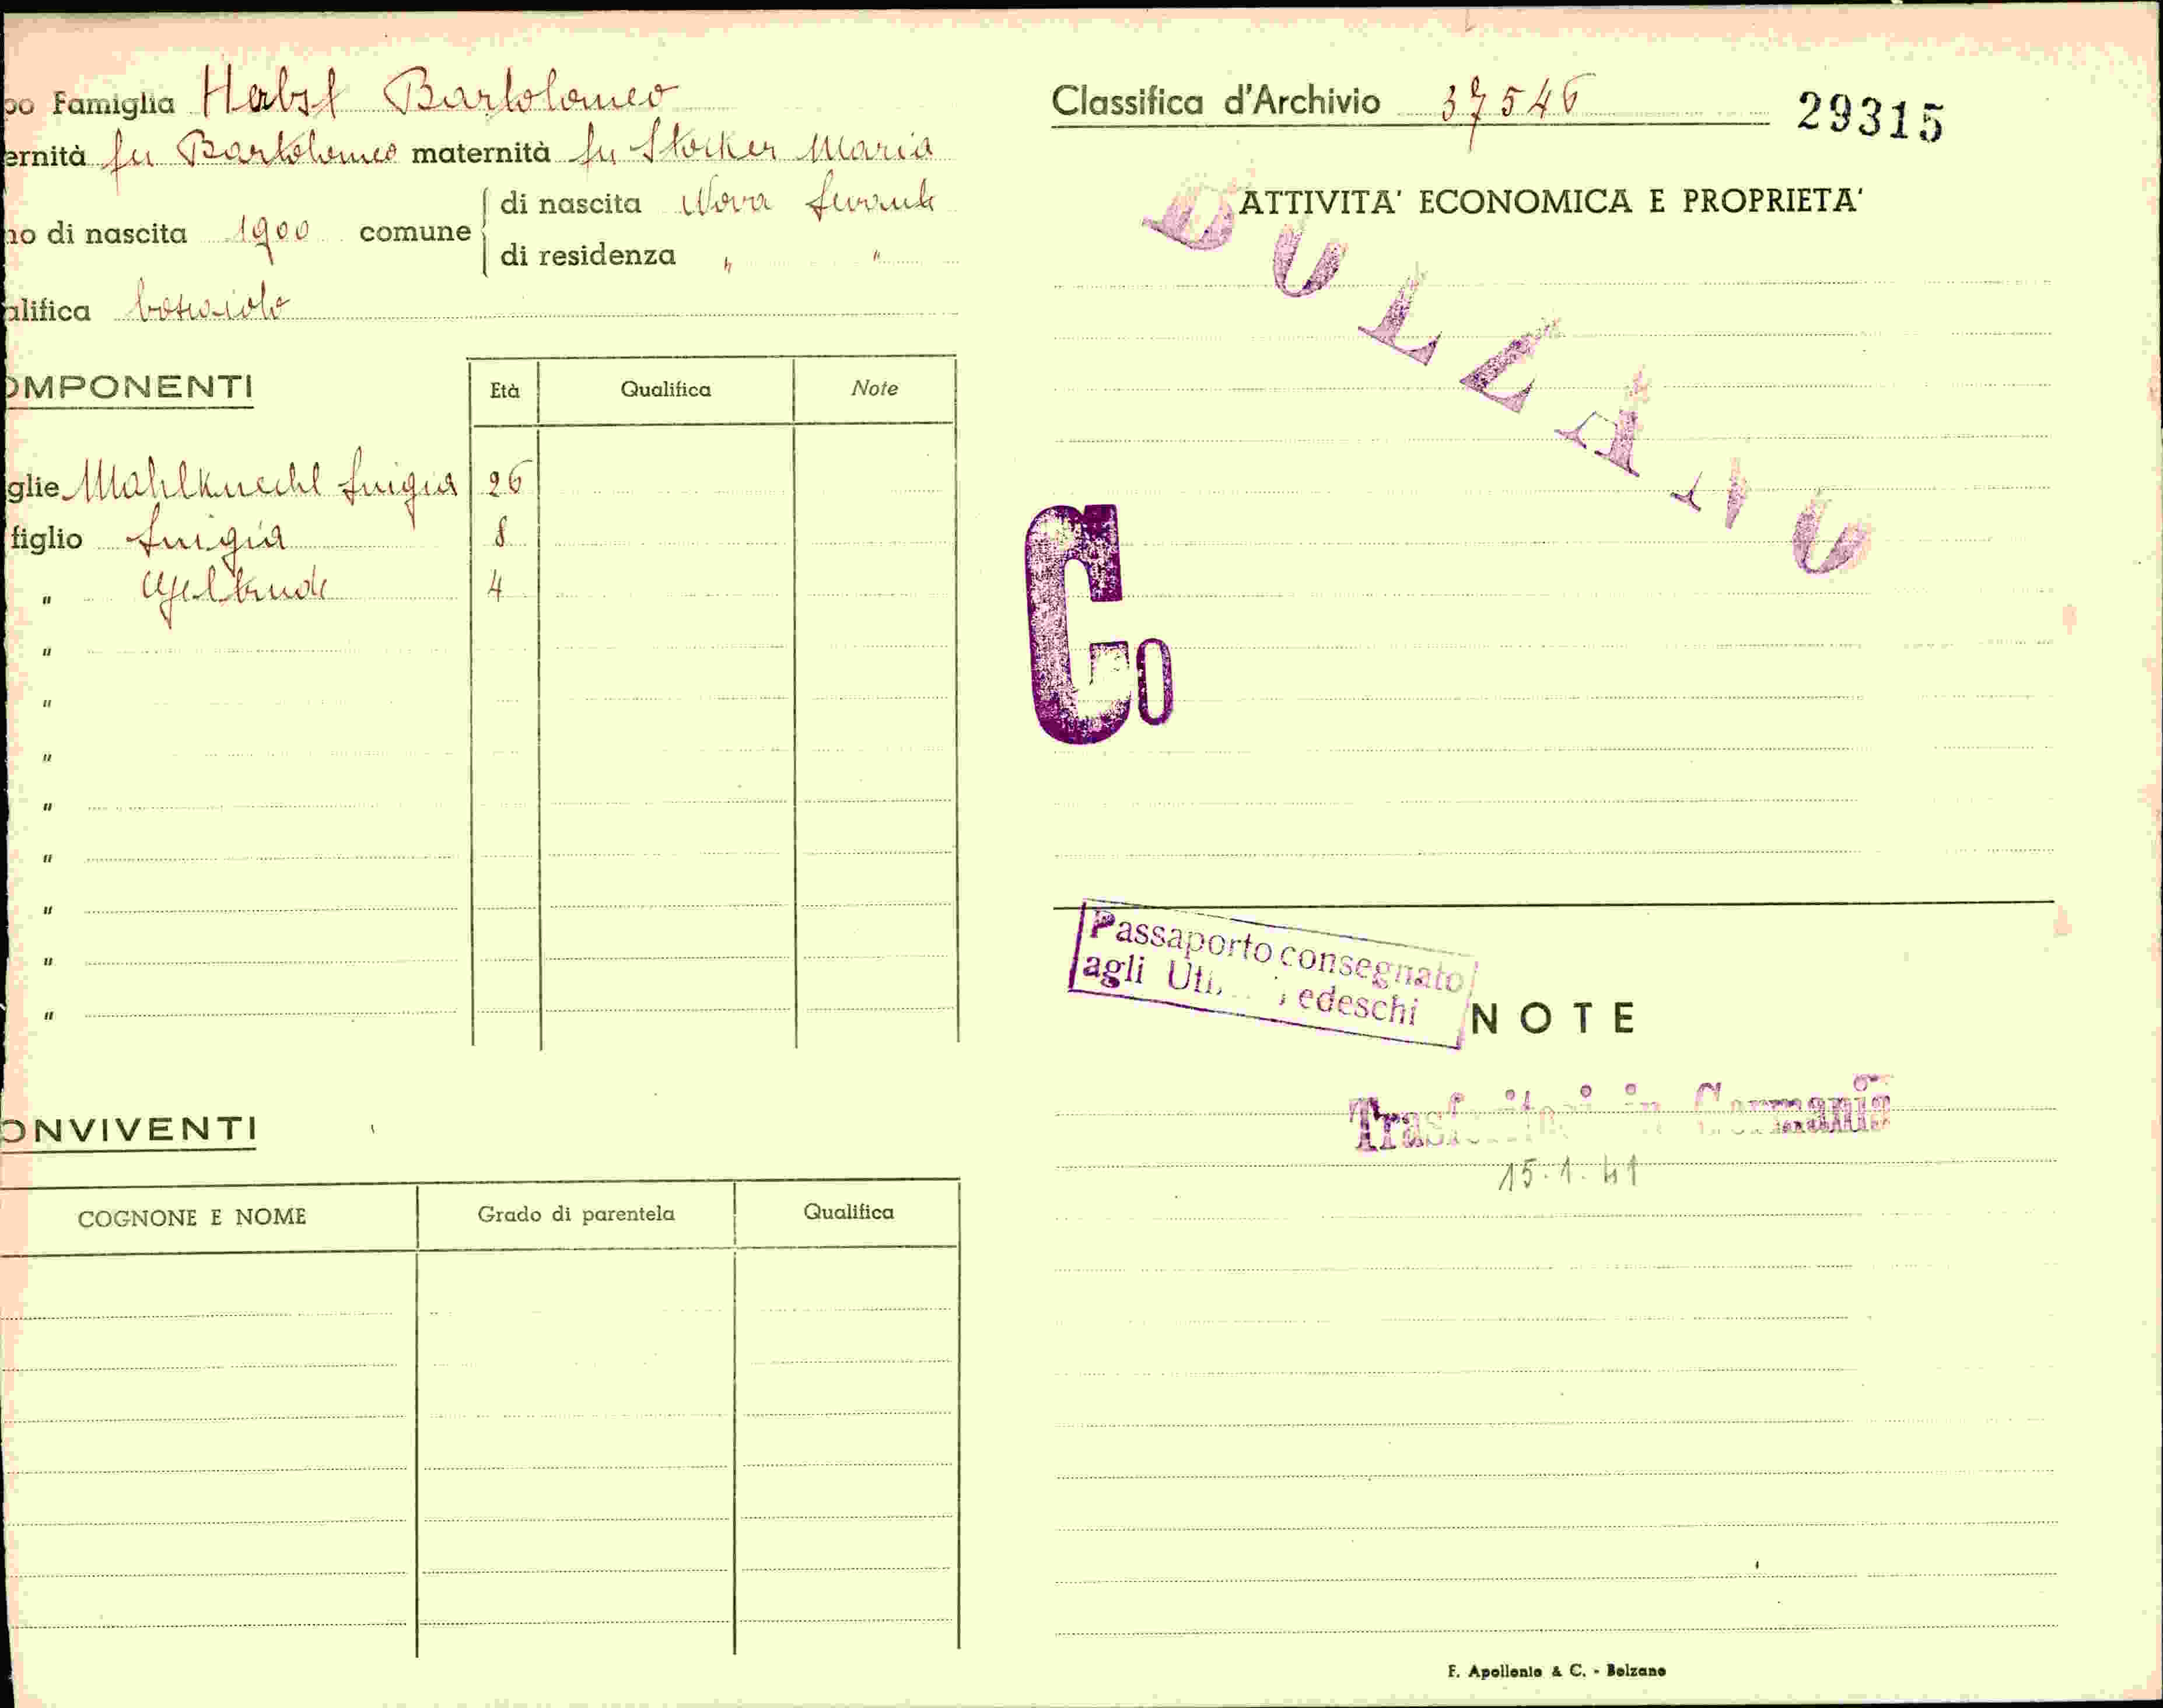 po Famiglia Herbst Bartolomeo
ernità fu Bartolomeo maternità fu Stocker Maria
no di nascita 1900 comune di nascita Nova Levante
di residenza " "
alifica boscaiolo
OMPONENTI Età Qualifica Note
glie Mahlknecht Luigia 26
figlio Luigia 8
" Geltrude 4
"
"
"
"
"
"
"
"
ONVIVENTI
COGNONE E NOME Grado di parentela Qualifica
Classifica d'Archivio 37546 29315
ATTIVITA' ECONOMICA E PROPRIETA'
BOLZANO
Co
Passaporto consegnato
agli Tedeschi
NOTE
in Germania
15.1.41
F. Apollonio & C. - Bolzano